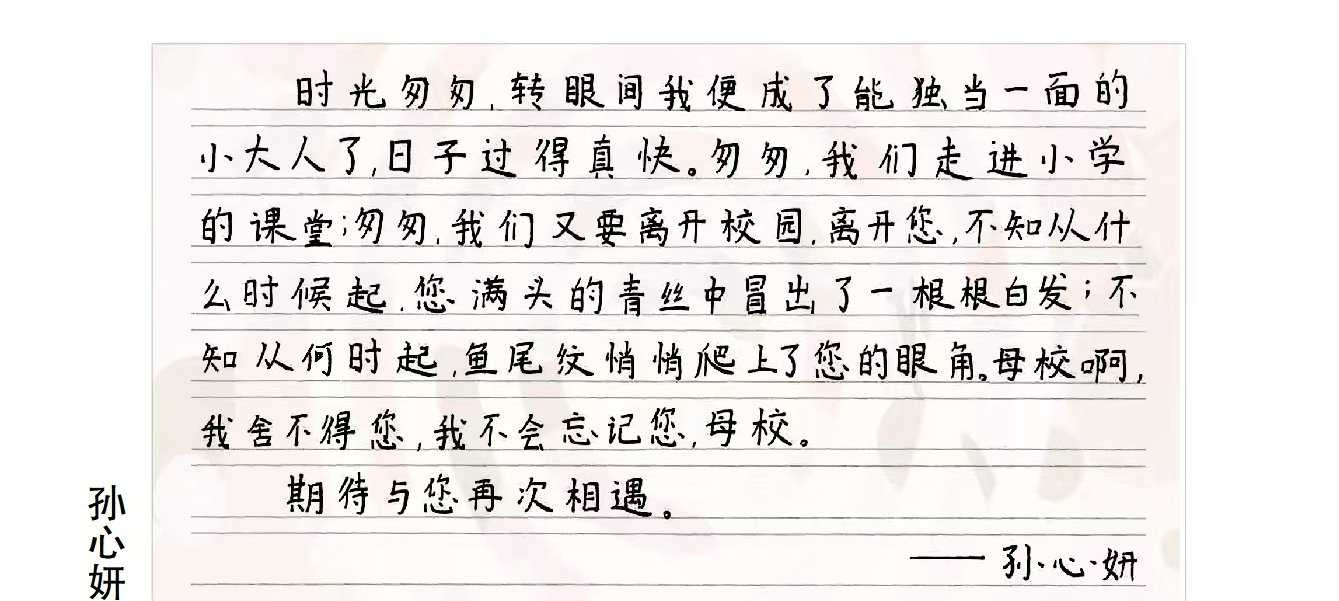 时光匆匆,转眼间我便成了能独当一面的
小大人了,日子过得真快。匆匆,我们走进小学
的课堂;匆匆,我们又要离开校园,离开您,不知从什
么时候起,您满头的青丝中冒出了一根根白发;不
知从何时起,鱼尾纹悄悄爬上了您的眼角。母校啊,
我舍不得您,我不会忘记您,母校。
期待与您再次相遇。
——孙·心·妍
孙心妍